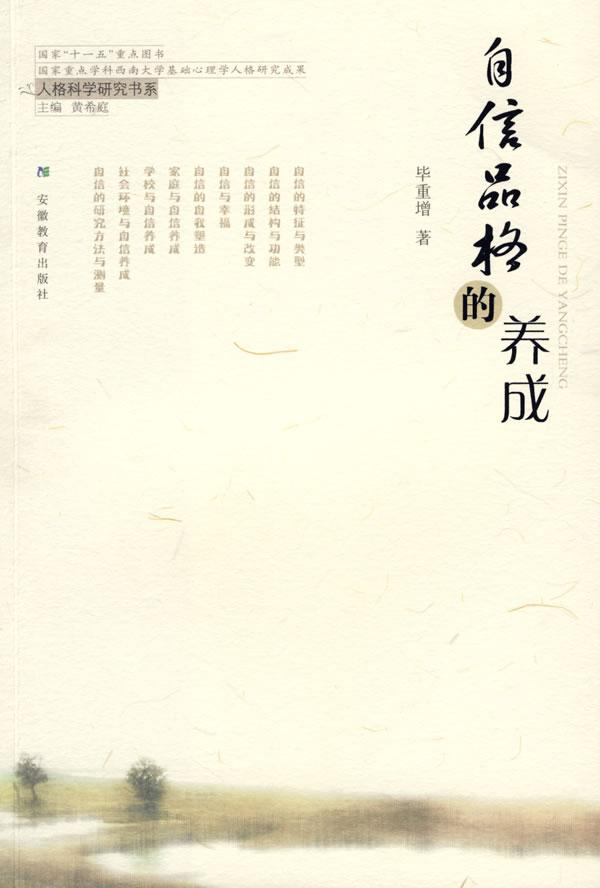 国家“十一五”重点图书
国家重点学科西南大学基础心理学人格研究成果
人格科学研究书系
主编 黄希庭
自信品格
的
养成
ZIXIN PINGE DE YANGCHENG
毕重增 著
自信的特征与类型
自信的结构与功能
自信的形成与改变
自信与幸福
自信的自我塑造
家庭与自信养成
学校与自信养成
社会环境与自信养成
自信的研究方法与测量
安徽教育出版社